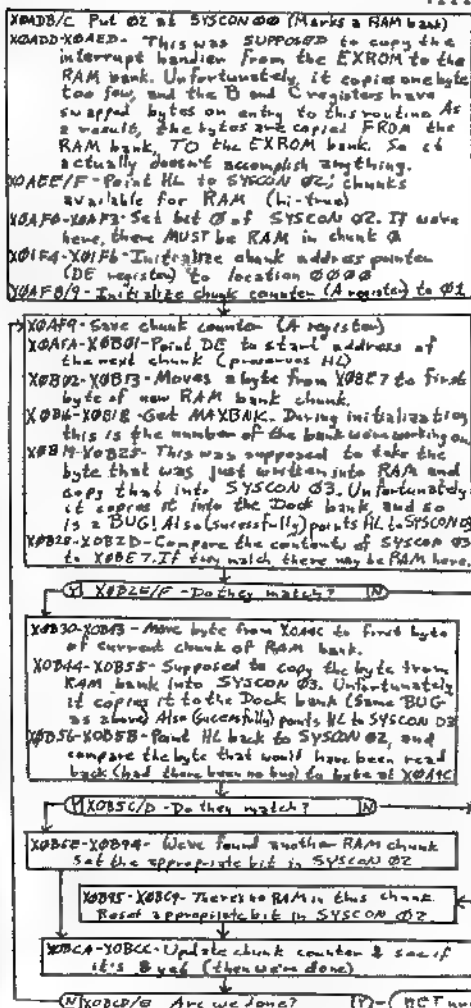 X0ADB/C Put 02 at SYSCON 00 (Marks a RAM bank)
X0ADD-X0AED- This was SUPPOSED to copy the
interrupt handler from the EXROM to the
RAM bank. Unfortunately, it copies one byte
too few, and the B and C registers have
swapped bytes on entry to this routine As
a result, the bytes are copied FROM the
RAM bank, TO the EXROM bank. So it
actually doesn't accomplish anything.
X0AEE/F-Point HL to SYSCON 02; chunks
available for RAM (hi-true)
X0AF0-X0AF3-Set bit 0 of SYSCON 02. If we're
here, there MUST be RAM in chunk 0
X01F4-X01F6-Initialize chunk address pointer
(DE register) to location 0000
X0AF8/9-Initialize chunk counter (A register) to 01
X0AF9-Save chunk counter (A register)
X0AFA-X0B01-Point DE to start address of
the next chunk (preserves HL)
X0B02-X0B13-Moves a byte from X0BE7 to first
byte of new RAM bank chunk.
X0B16-X0B18-Get MAXBNK. During initialization
this is the number of the bank we're working on
X0B19-X0B25-This was supposed to take the
byte that was just written into RAM and
copy that into SYSCON 03. Unfortunately
it copies it into the Dock bank, and so
is a BUG! Also (sucessfully) points HL to SYSCON 03
X0B28-X0B2D-Compare the contents of SYSCON 03
to X0BE7. If they match there may be RAM here.
Y X0B2E/F-Do they match? N
X0B30-X0B43-Move byte from X0A9C to first byte
of current chunk of RAM bank.
X0B44-X0B55-Supposed to copy the byte from
RAM bank into SYSCON 03. Unfortunately
it copies it to the Dock bank (Same BUG
as above) Also (sucessfully) points HL to SYSCON 03
X0B56-X0B5B-Point HL back to SYSCON 02, and
compare the byte that would have been read
back (had there been no bug) to byte at X0A9C
Y X0B5C/D-Do they match? N
X0B5E-X0B94-We've found another RAM chunk
Set the appropriate bit in SYSCON 02
X0B95-X0BC9-There's no RAM in this chunk
Reset appropriate bit in SYSCON 02
X0BCA-X0BCC-Update chunk counter & see if
it's 8 yet (then we're done)
N X0BCD/E Are we done? Y